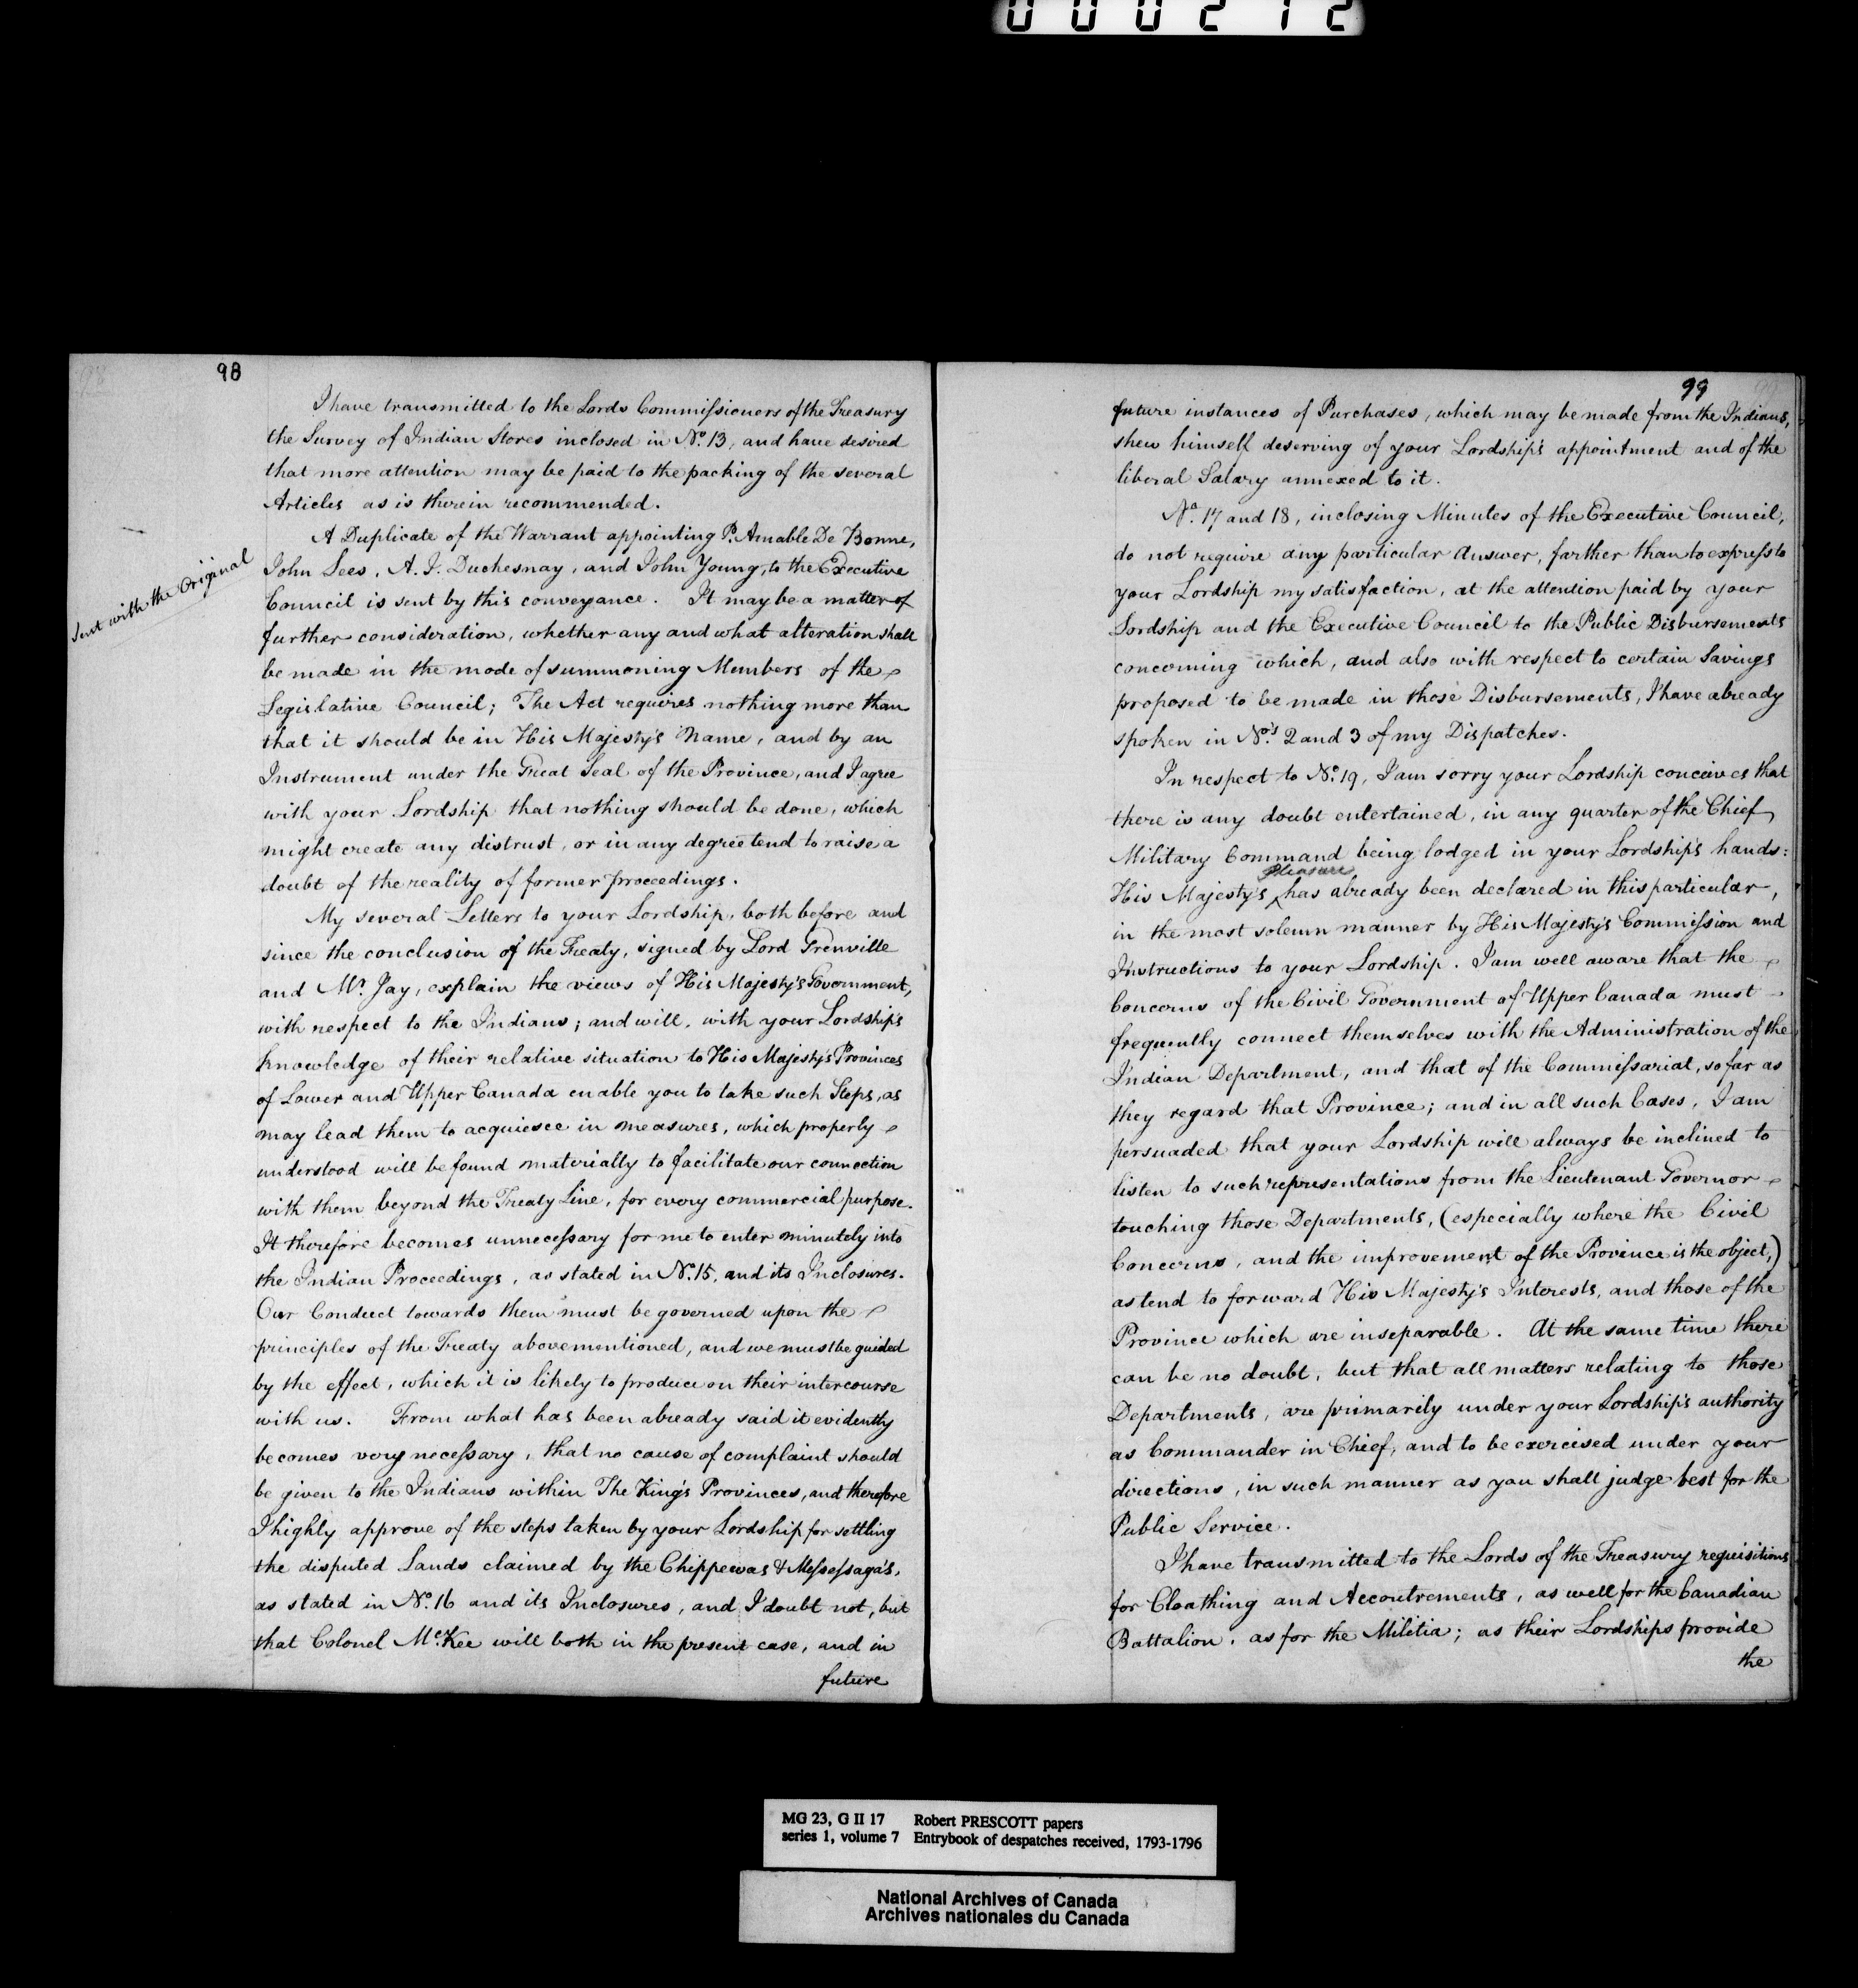 000212
98
I have transmitted to the Lords Commiſsioners of the Treasury
the Survey of Indian Stores inclosed in No. 13, and have desired
that more attention may be paid to the packing of the several
Articles as is therein recommended.
Sent with the Original
A Duplicate of the Warrant appointing P. Amable De Bonne,
John Lees, A. I. Duchesnay, and John Young, to the Executive
Council is sent by this conveyance. It may be a matter of
further consideration, whether any and what alteration shall
be made in the mode of summoning Members of the
Legislative Council; The Act requires nothing more than
that it should be in His Majesty's Name, and by an
Instrument under the Great Seal of the Province, and I agree
with your Lordship that nothing should be done, which
might create any distrust, or in any degree tend to raise a
doubt of the reality of former proceedings.
My several Letters to your Lordship, both before and
since the conclusion of the Treaty, signed by Lord Grenville
and Mr. Jay, explain the views of His Majesty's Government,
with respect to the Indians; and will, with your Lordship's
knowledge of their relative situation to His Majesty's Provinces
of Lower and Upper Canada enable you to take such Steps, as
may lead them to acquiesce in measures, which properly
understood will be found materially to facilitate our connection
with them beyond the Treaty Line, for every commercial purpose.
It therefore becomes unneceſsary for me to enter minutely into
the Indian Proceedings, as stated in No. 15, and its Inclosures.
Our Conduct towards them must be governed upon the
principles of the Treaty abovementioned, and we must be guided
by the effect, which it is likely to produce on their intercourse
with us. From what has been already said it evidently
becomes very neceſsary, that no cause of complaint should
be given to the Indians within The King's Provinces, and therefore
I highly approve of the steps taken by your Lordship for settling
the disputed Lands claimed by the Chippewas & Meſseſsaga's,
as stated in No. 16 and its Inclosures, and I doubt not, but
that Colonel McKee will both in the present case, and in
future
99
future instances of Purchases, which may be made from the Indians,
shew himself deserving of your Lordship's appointment and of the
liberal Salary annexed to it.
No. 17 and 18, inclosing Minutes of the Executive Council,
do not require any particular Answer, farther than to expreſs to
your Lordship my satisfaction, at the attention paid by your
Lordship and the Executive Council to the Public Disbursements
concerning which, and also with respect to certain Savings
proposed to be made in those Disbursements, I have already
spoken in No's. 2 and 3 of my Dispatches.
In respect to No. 19, I am sorry your Lordship conceives that
there is any doubt entertained, in any quarter of the Chief
Military Command being lodged in your Lordship's hands:
Pleasure
His Majesty's ‸ has already been declared in this particular,
in the most solemn manner by His Majesty's Commiſsion and
Instructions to your Lordship. I am well aware that the
Concerns of the Civil Government of Upper Canada must
frequently connect themselves with the Administration of the
Indian Department, and that of the Commiſsariat, so far as
they regard that Province; and in all such Cases, I am
persuaded that your Lordship will always be inclined to
listen to such representations from the Lieutenant Governor
touching those Departments, (especially where the Civil
Concerns, and the improvement of the Province is the object,)
as tend to forward His Majesty's Interests, and those of the
Province which are inseparable. At the same time there
can be no doubt, but that all matters relating to those
Departments, are primarily under your Lordship's authority
as Commander in Chief, and to be exercised under your
directions, in such manner as you shall judge best for the
Public Service.
I have transmitted to the Lords of the Treasury requisitions
for Cloathing and Accoutrements, as well for the Canadian
Battalion, as for the Militia; as their Lordships provide
the
MG 23, G II 17 Robert PRESCOTT papers
series 1, volume 7 Entrybook of despatches received, 1793-1796
National Archives of Canada
Archives nationales du Canada